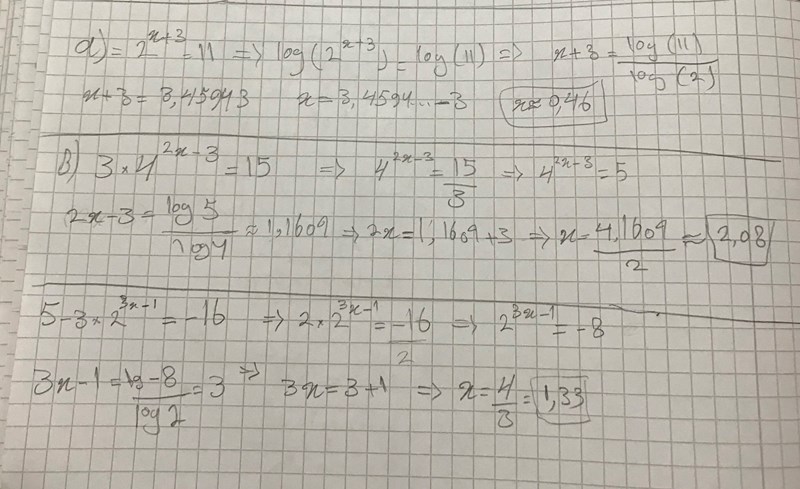 a) = 2^{x+3} = 11 => log(2^{x+3}) = log(11) => x+3 = log(11)/log(2)
x+3 = 3,45943 x = 3,4594... -3 x≈0,46
B) 3×4^{2x-3} = 15 => 4^{2x-3} = 15/3 => 4^{2x-3} = 5
2x-3 = log 5/log 4 ≈ 1,1609 => 2x = 1,1609+3 => x = 4,1609/2 ≈ 2,08
5-3×2^{3x-1} = -16 => 2×2^{3x-1} = -16/2 => 2^{3x-1} = -8
3x-1 = lg-8/log 2 = 3 => 3x = 3+1 => x = 4/3 = 1,33